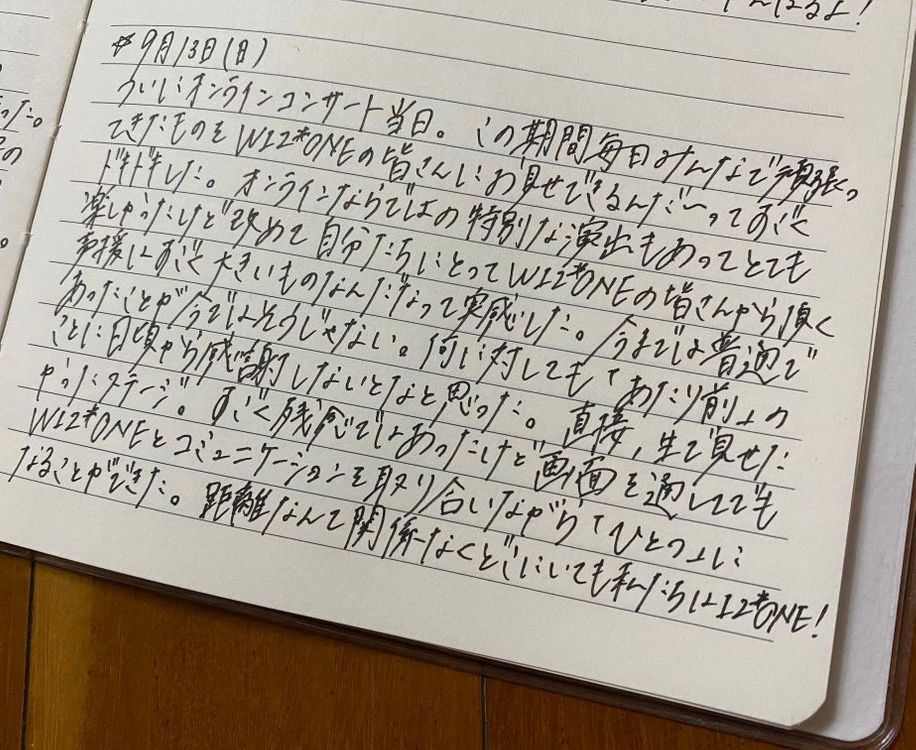 んばるよ!
った。
の
。
☆9月13日(日)
ついにオンラインコンサート当日。この期間毎日みんなで頑張っ
てきたものをWIZ*ONEの皆さんにお見せできるんだ〜ってすごく
ドキドキした。オンラインならではの特別な演出もあってとても
楽しかったけど改めて自分たちにとってWIZ*ONEの皆さんから頂く
声援はすごく大きいものなんだなって実感した。今までは普通で
あったことが今ではそうじゃない。何に対しても「あたり前」の
ことに日頃から感謝しないとなと思った。直接、生で見せた
かったステージ。すごく残念ではあったけど画面を通してでも
WIZ*ONEとコミュニケーションを取り合いながら「ひとつ」に
なることができた。距離なんて関係なくどこにいても私たちはIZ*ONE!